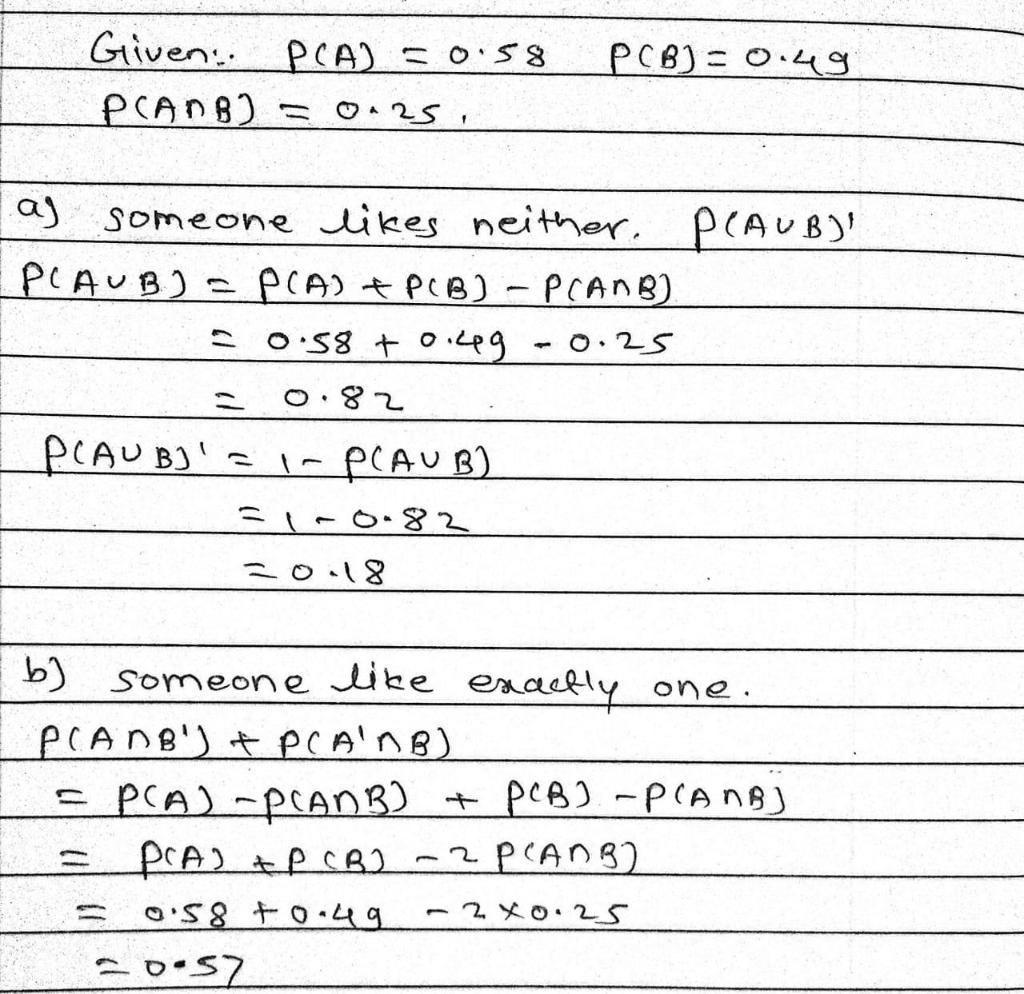 Given:. P(A) = 0.58 P(B) = 0.49
P(A∩B) = 0.25.
a) someone likes neither. P(A∪B)'
P(A∪B) = P(A) + P(B) - P(A∩B)
= 0.58 + 0.49 - 0.25
= 0.82
P(A∪B)' = 1 - P(A∪B)
= 1 - 0.82
= 0.18
b) someone like exactly one.
P(A∩B') + P(A'∩B)
= P(A) - P(A∩B) + P(B) - P(A∩B)
= P(A) + P(B) - 2 P(A∩B)
= 0.58 + 0.49 - 2 × 0.25
= 0.57